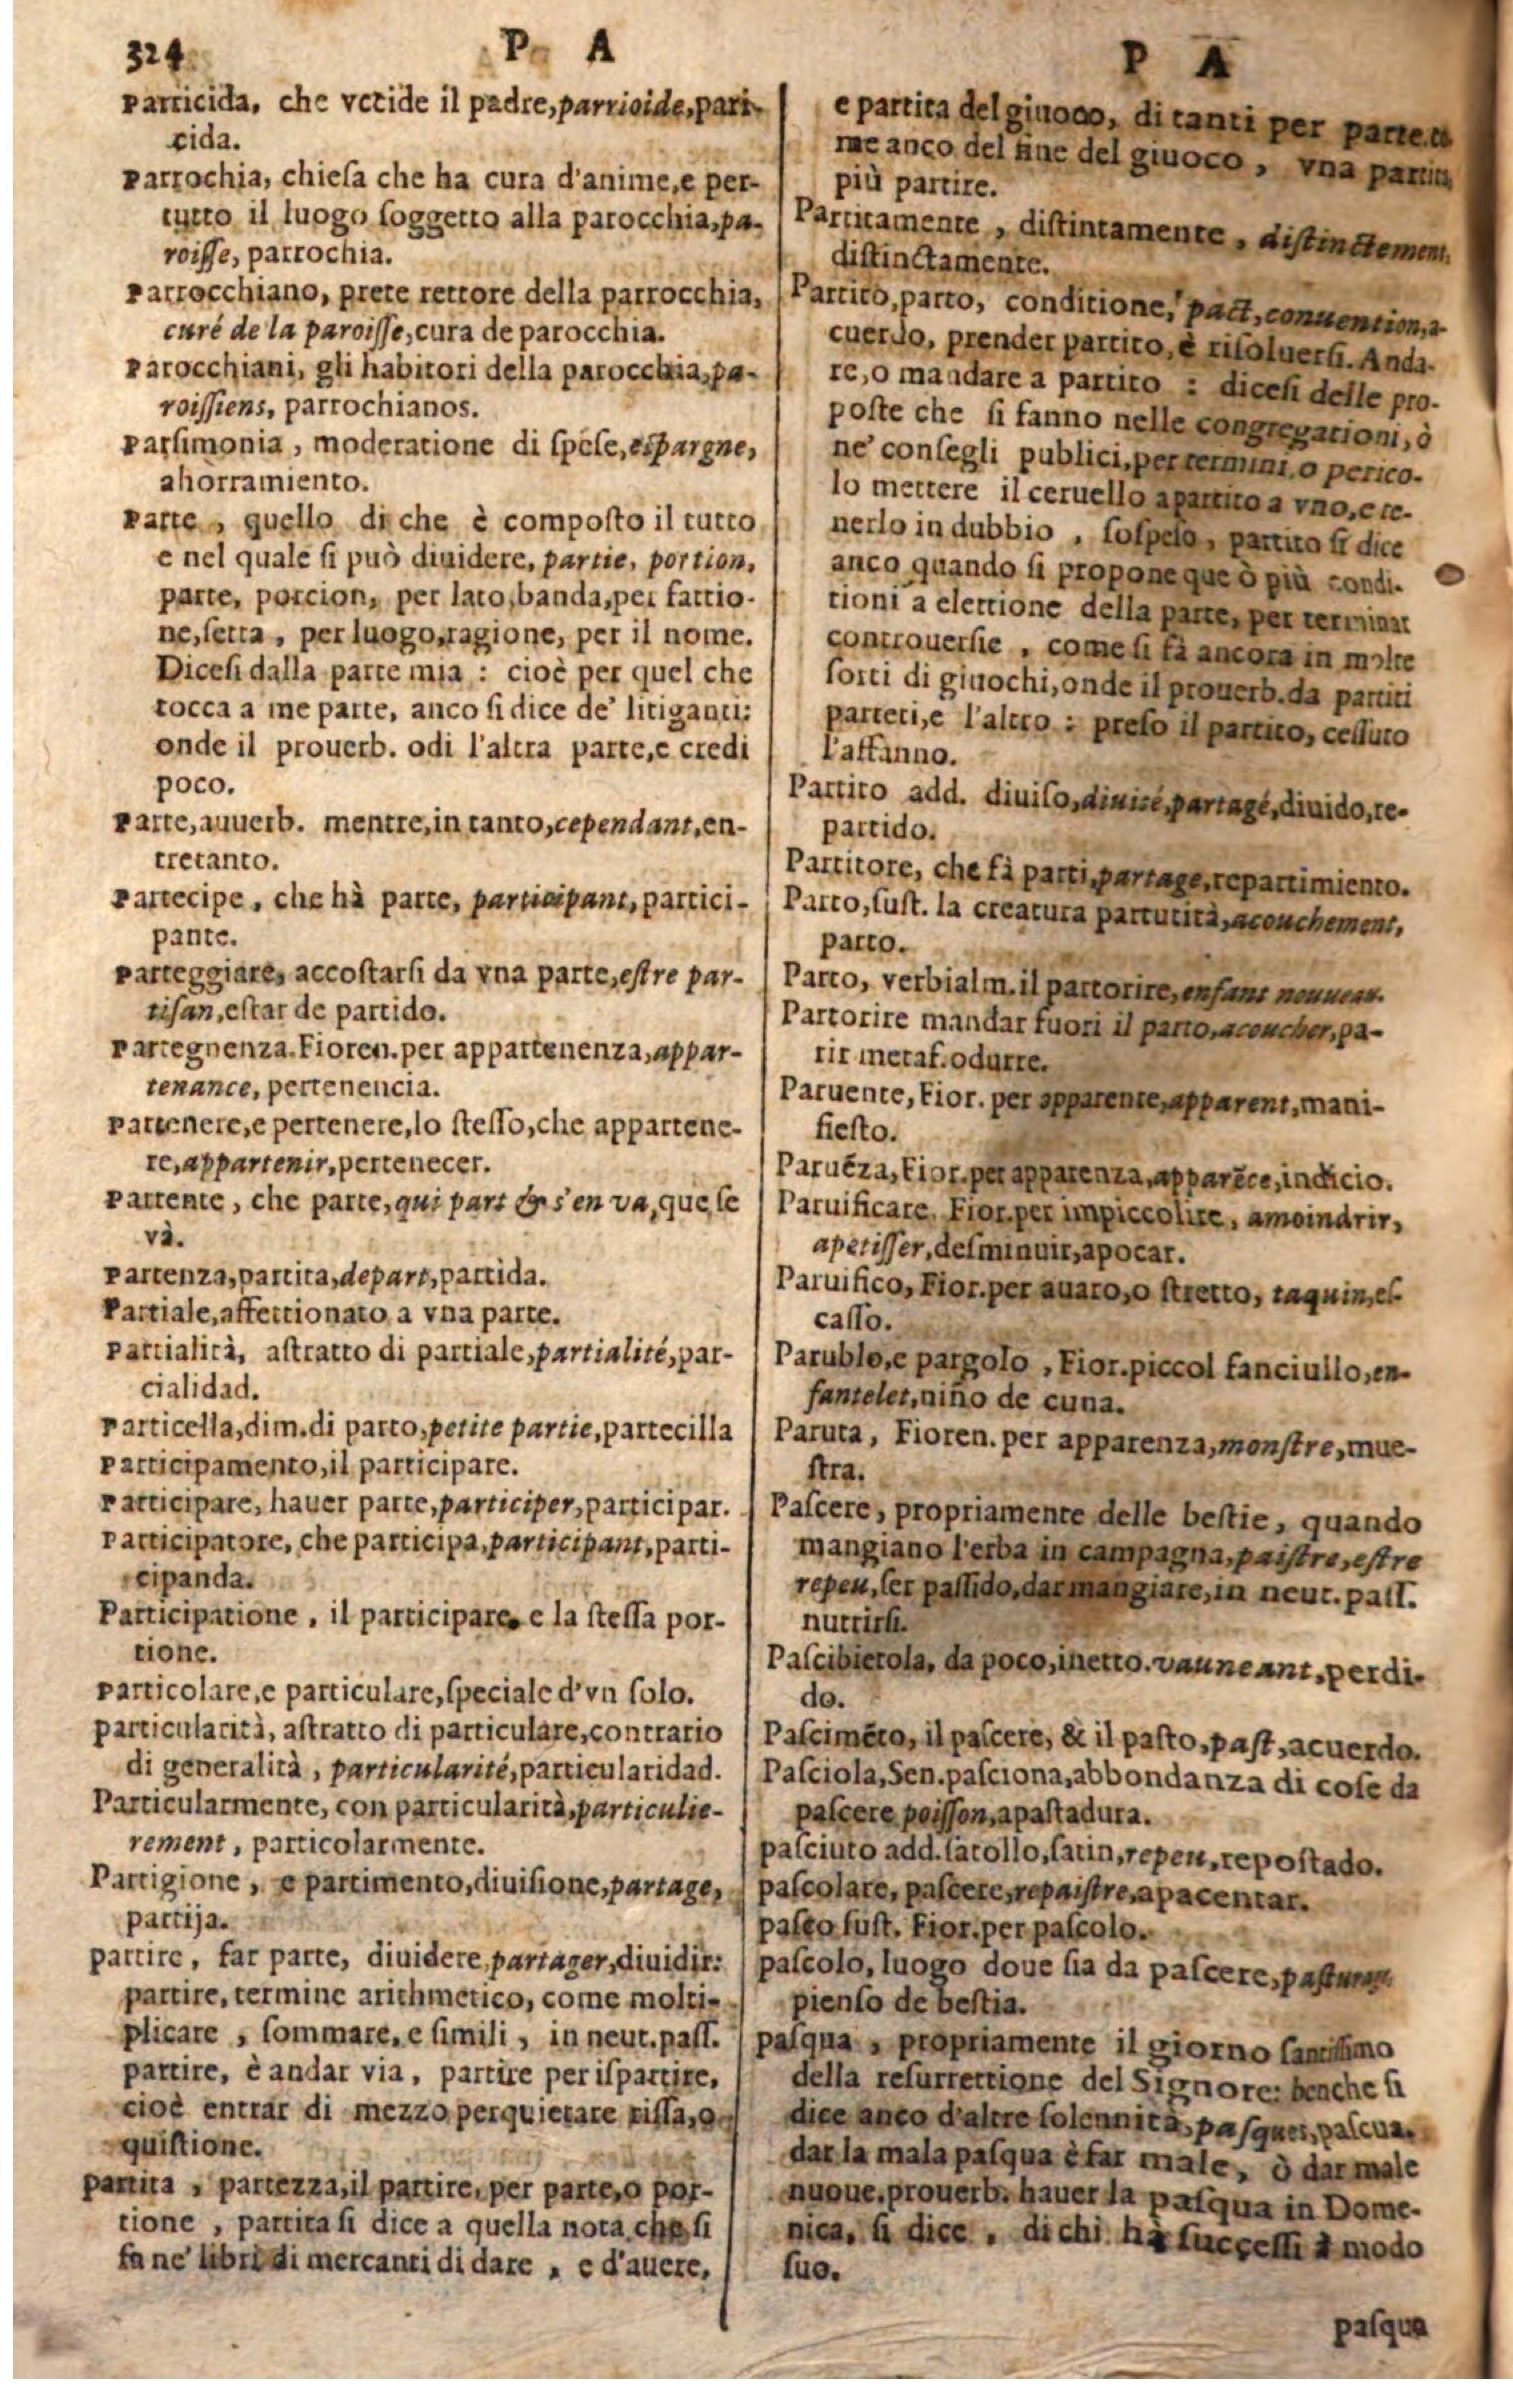 324 P A
Parricida, che vccide il padre,parrioide,pari-
cida.
Parrochia, chieſa che ha cura d'anime,e per-
tutto il luogo ſoggetto alla parocchia,pa-
roiſſe, parrochia.
Parrocchiano, prete rettore della parrocchia,
curé de la paroiſſe,cura de parocchia.
Parocchiani, gli habitori della parocchia,pa-
roiſſiens, parrochianos.
Parsimonia, moderatione di ſpeſe,eſpargne,
ahorramiento.
Parte, quello di che è compoſto il tutto
e nel quale ſi può diuidere, partie, portion,
parte, porcion, per lato,banda,per fattio-
ne,ſetta, per luogo,ragione, per il nome.
Diceſi dalla parte mia : cioè per quel che
tocca a me parte, anco ſi dice de' litiganti:
onde il prouerb. odi l'altra parte,e credi
poco.
Parte,auuerb. mentre,in tanto,cependant,en-
tretanto.
Partecipe, che hà parte, participant, partici-
pante.
Parteggiare, accoſtarſi da vna parte,eſtre par-
tiſan,eſtar de partido.
Partegnenza.Fioren.per appartenenza,appar-
tenance, pertenencia.
Partenere,e pertenere,lo ſteſſo,che appartene-
re,appartenir,pertenecer.
Partente, che parte,qui part & s'en va,que ſe
và.
Partenza,partita,depart,partida.
Partiale,affettionato a vna parte.
Partialità, aſtratto di partiale,partialité,par-
cialidad.
Particella,dim.di parto,petite partie,partecilla
Participamento,il participare.
Participare, hauer parte,participer,participar.
Participatore, che participa,participant,parti-
cipanda.
Participatione, il participare, e la ſteſſa por-
tione.
Particolare,e particulare,ſpeciale d'vn ſolo.
particularità, aſtratto di particulare,contrario
di generalità, particularité,particularidad.
Particularmente, con particularità,particulie-
rement, particolarmente.
Partigione, e partimento,diuiſione,partage,
partija.
partire, far parte, diuidere,partager,diuidir:
partire, termine arithmetico, come molti-
plicare, ſommare, e ſimili, in neut.paſſ.
partire, è andar via, partire per iſpartire,
cioè entrar di mezzo perquietare riſſa,o
quiſtione.
partita, partezza,il partire, per parte,o por-
tione, partita ſi dice a quella nota che ſi
fa ne' libri di mercanti di dare, e d'auere,
P A
e partita del giuoco, di tanti per parte.co
me anco del fine del giuoco, vna partita
più partire.
Partitamente, diſtintamente, diſtinctement,
diſtinctamente.
Partito,parto, conditione, pact,conuention,a-
cuerdo, prender partito, è riſoluerſi. Anda-
re,o mandare a partito : diceſi delle pro-
poſte che ſi fanno nelle congregationi, ò
ne' conſegli publici,per termini, o perico-
lo mettere il ceruello a partito a vno,e te-
nerlo in dubbio, ſoſpeſo, partito ſi dice
anco quando ſi propone que ò più condi-
tioni a elettione della parte, per terminar
controuerſie, come ſi fà ancora in molte
ſorti di giuochi,onde il prouerb.da partiti
parteti,e l'altro : preſo il partito, ceſſuto
l'affanno.
Partito add. diuiſo,diuisé,partagé,diuido,re-
partido.
Partitore, che fà parti,partage,repartimiento.
Parto,ſuſt. la creatura partutità,acouchement,
parto.
Parto, verbialm.il partorire,enfant nouueau.
Partorire mandar fuori il parto,acoucher,pa-
rir metaf.odurre.
Paruente, Fior. per apparente,apparent,mani-
fieſto.
Paruẽza,Fior.per apparenza,apparẽce,indicio.
Paruificare. Fior.per impiccolire, amoindrir,
apetiſſer,deſminuir,apocar.
Paruifico, Fior.per auaro,o ſtretto, taquin,eſ-
caſſo.
Parublo,e pargolo, Fior.piccol fanciullo,en-
fantelet,niño de cuna.
Paruta, Fioren.per apparenza,monſtre,mue-
ſtra.
Paſcere, propriamente delle beſtie, quando
mangiano l'erba in campagna,paiſtre,eſtre
repeu,ſer paſſido,dar mangiare,in neut.paſſ.
nutrirſi.
Paſcibietola, da poco,inetto.vauneant,perdi-
do.
Paſcimẽto, il paſcere, & il paſto,paſt,acuerdo.
Paſciola,Sen.paſciona,abbondanza di coſe da
paſcere poiſſon,apaſtadura.
paſciuto add.ſatollo,ſatin,repeu,repoſtado.
paſcolare, paſcere,repaiſtre,apacentar.
paſco ſuſt. Fior.per paſcolo.
paſcolo, luogo doue ſia da paſcere,paſturage
pienſo de beſtia.
paſqua, propriamente il giorno ſantiſſimo
della reſurrettione del Signore: benche ſi
dice anco d'altre ſolennità,paſques,paſcua.
dar la mala paſqua è far male, ò dar male
nuoue.prouerb. hauer la paſqua in Dome-
nica, ſi dice, di chi hà ſucceſſi à modo
ſuo.
paſqua